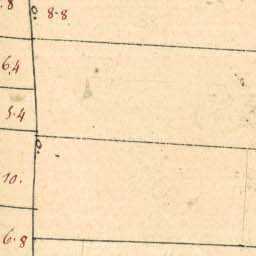 .8
8-8
6.4
5.4
10.
6.8